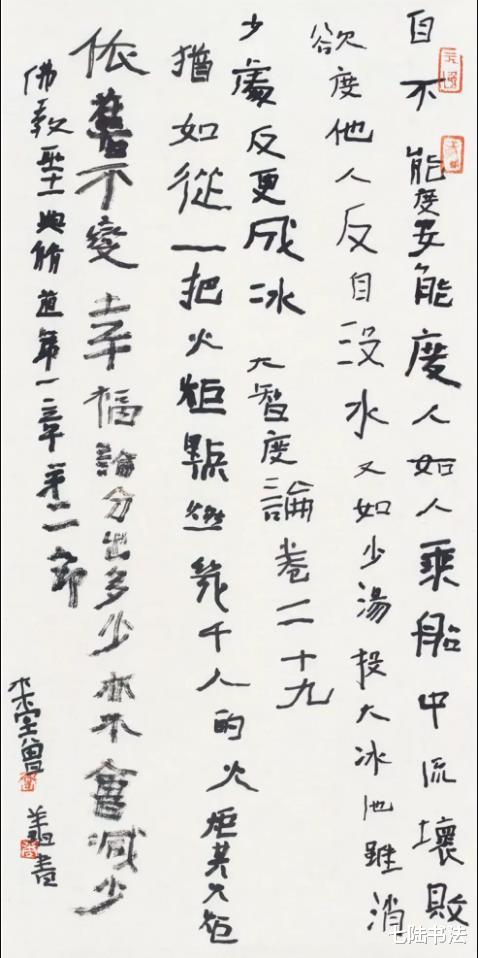 自不能度安能度人如人乘船中流壞敗
欲度他人反自沒水又如少湯投大冰池雖消
少處反更成冰 大智度論卷二十九
猶如從一把火炬點燃幾千人的火炬其火炬
依舊不變幸福論分出多少亦不會減少
佛教聖典脩道第一章第二節
木木堂曾翔書
七陆书法